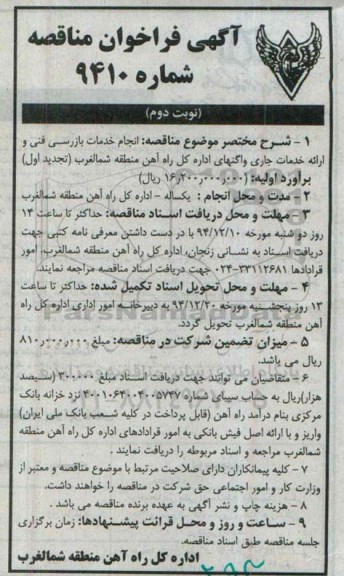 آگهی فراخوان مناقصه
شماره ۹۴۱۰
(نوبت دوم)
۱ - شرح مختصر موضوع مناقصه: انجام خدمات بازرسی فنی و
ارائه خدمات جاری واگنهای اداره کل راه آهن منطقه شمالغرب (تجدید اول)
برآورد اولیه: (۱۶٫۲۰۰٫۰۰۰٫۰۰۰ ریال)
۲ - مدت و محل انجام : یکساله - اداره کل راه آهن منطقه شمالغرب
۳ - مهلت و محل دریافت اسناد مناقصه: حداکثر تا ساعت ۱۴
روز دو شنبه مورخه ۹۴/۱۲/۱۰ با در دست داشتن معرفی نامه کتبی جهت
دریافت اسناد به نشانی زنجان، اداره کل راه آهن منطقه شمالغرب، امور
قرادادها ۳۳۱۱۲۶۸۱-۰۲۴ جهت دریافت اسناد مناقصه مراجعه نمایند.
۴ - مهلت و محل تحویل اسناد تکمیل شده: حداکثر تا ساعت
۱۳ روز پنجشنبه مورخه ۹۴/۱۲/۲۰ به دبیرخانه امور اداری اداره کل راه
آهن منطقه شمالغرب تحویل گردد.
۵ - میزان تضمین شرکت در مناقصه: مبلغ ۸۱۰٫۰۰۰٫۰۰۰
ریال می باشد.
۶ - متقاضیان می توانند جهت دریافت اسناد مبلغ ۳۰۰٫۰۰۰ (سیصد
هزار)ریال به حساب سیبای شماره نزد خزانه بانک
مرکزی بنام درآمد راه آهن (قابل پرداخت در کلیه شعب بانک ملی ایران)
واریز و با ارائه اصل فیش بانکی به امور قرادادهای اداره کل راه آهن منطقه
شمالغرب مراجعه و اسناد مربوطه را دریافت نمایند .
۷ - کلیه پیمانکاران دارای صلاحیت مرتبط با موضوع مناقصه و معتبر از
وزارت کار و امور اجتماعی حق شرکت در مناقصه را خواهند داشت.
۸ - هزینه چاپ و نشر آگهی به عهده برنده مناقصه می باشد .
۹ - ساعت و روز و محل قرائت پیشنهادها: زمان برگزاری
جلسه مناقصه طبق اسناد مناقصه.
اداره کل راه آهن منطقه شمالغرب
ParsNamadData